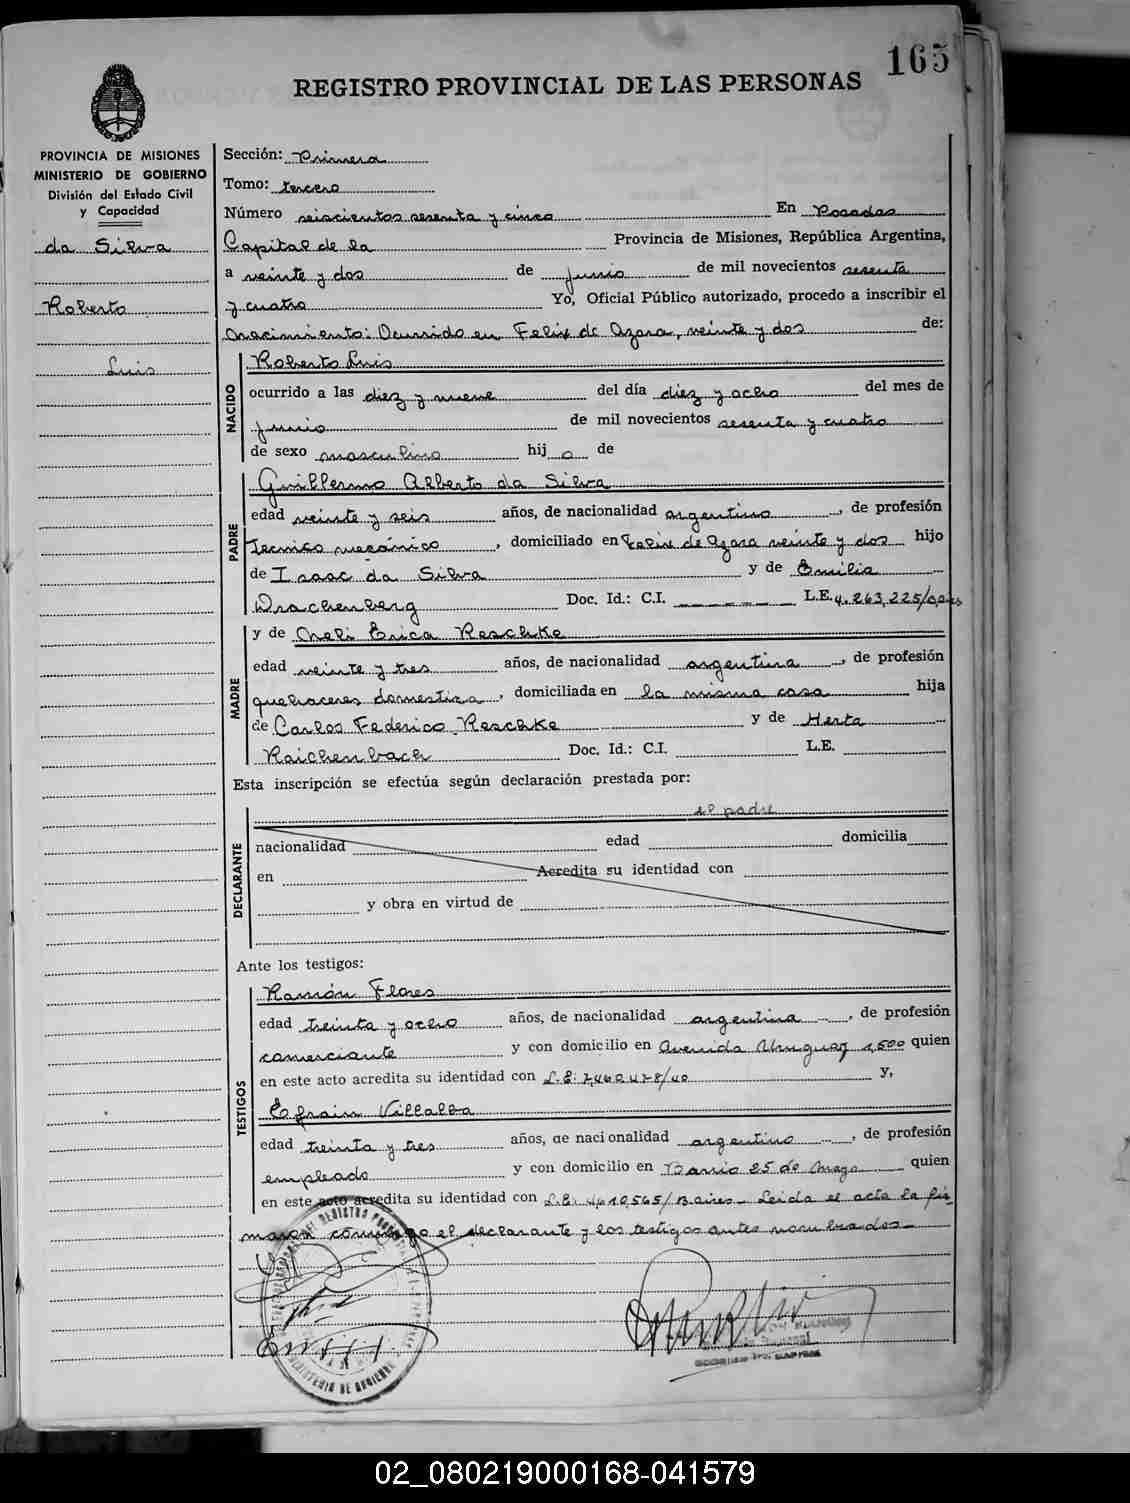 165
REGISTRO PROVINCIAL DE LAS PERSONAS
PROVINCIA DE MISIONES
MINISTERIO DE GOBIERNO
División del Estado Civil
y Capacidad
da Silva
Roberto
Luis
Sección: Primera
Tomo: tercero
Número seiscientos sesenta y cinco En Posadas
Capital de la Provincia de Misiones, República Argentina,
a veinte y dos de junio de mil novecientos sesenta
y cuatro Yo, Oficial Público autorizado, procedo a inscribir el
nacimiento: Ocurrido en Felix de Azara, veinte y dos de:
NACIDO
Roberto Luis
ocurrido a las diez y nueve del día diez y ocho del mes de
junio de mil novecientos sesenta y cuatro
de sexo masculino hijo de
PADRE
Guillermo Alberto da Silva
edad veinte y seis años, de nacionalidad argentino, de profesión
Tecnico mecánico, domiciliado en Felix de Azara veinte y dos hijo
de Isaac da Silva y de Emilia
Drachenberg Doc. Id.: C.I. L.E. 4.263.225
MADRE
y de Neli Erica Reschke
edad veinte y tres años, de nacionalidad argentina, de profesión
quehaceres domestica, domiciliada en la misma casa hija
de Carlos Federico Reschke y de Herta
Raichenbach Doc. Id.: C.I. L.E.
Esta inscripción se efectúa según declaración prestada por:
DECLARANTE
el padre
nacionalidad edad domicilia
en Acredita su identidad con
y obra en virtud de
Ante los testigos:
TESTIGOS
Ramón Flores
edad treinta y ocho años, de nacionalidad argentina, de profesión
comerciante y con domicilio en Avenida Uruguay 1,500 quien
en este acto acredita su identidad con L.E: 7,460.478/40 y,
Efrain Villalba
edad treinta y tres años, de nacionalidad argentino, de profesión
empleado y con domicilio en Barrio 25 de Mayo quien
en este acto acredita su identidad con L.E: 4,610,565/Baires- Leida el acta la fir
maron conmigo el declarante y los testigos antes nombrados-
MINISTERIO DE GOBIERNO
02_080219000168-041579